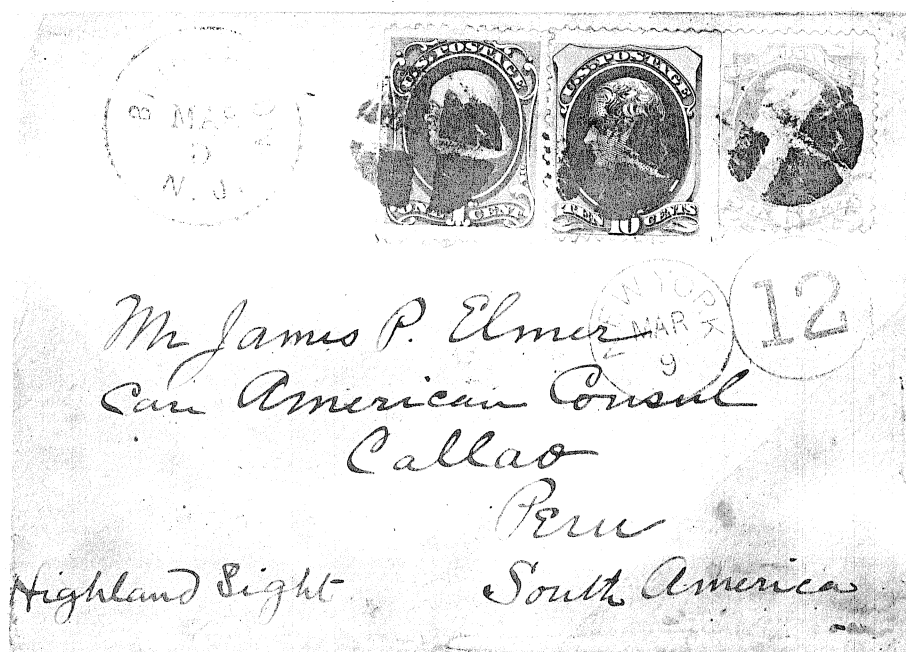 U.S. POSTAGE
U.S. POSTAGE
TEN 10 CENTS
MAR
N. J.
NEW YORK
MAR
9
12
Mr James P. Elmer
Care American Consul
Callao
Peru
South America
Highland Light